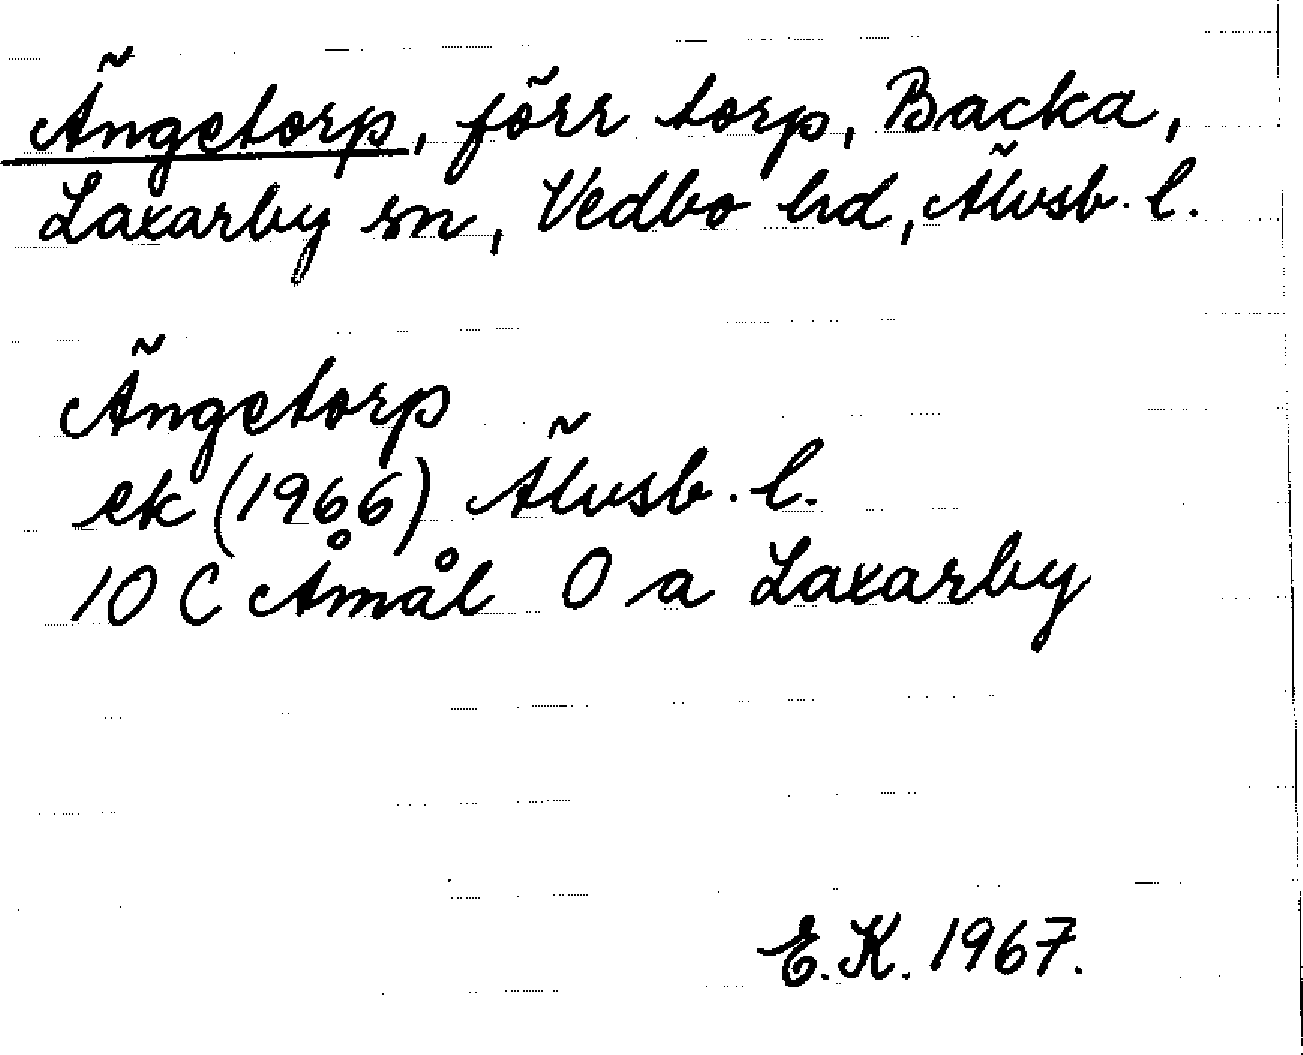 Ängetorp, förr torp, Backa,
Laxarby sn, Vedbo hd, Älvsb. l.
Ängetorp
ek (1966) Älvsb. l.
10 C Åmål O a Laxarby
E.K. 1967.